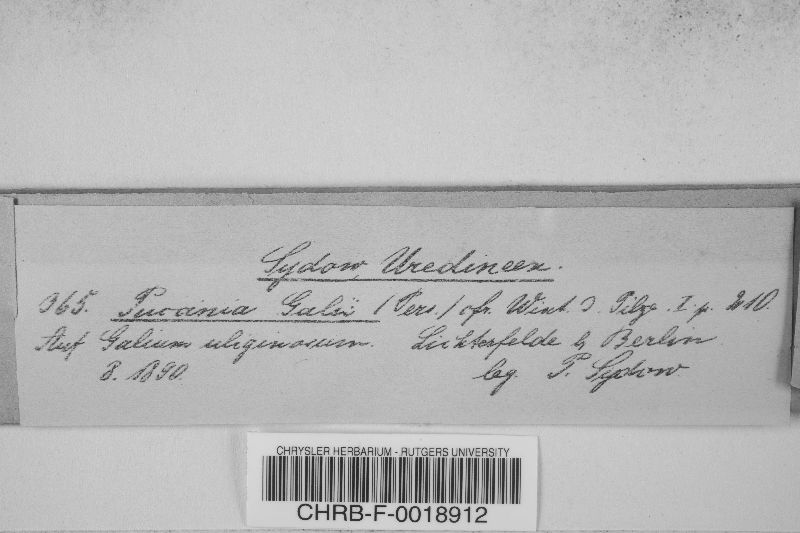 Sydow, Uredineen.
365. Puccinia Galii (Pers.) cfr. Wint. D. Pilze. I p. 210.
Auf Galium uliginosum. Lichterfelde b. Berlin.
8. 1890. leg. P. Sydow.
CHRYSLER HERBARIUM - RUTGERS UNIVERSITY
CHRB-F-0018912